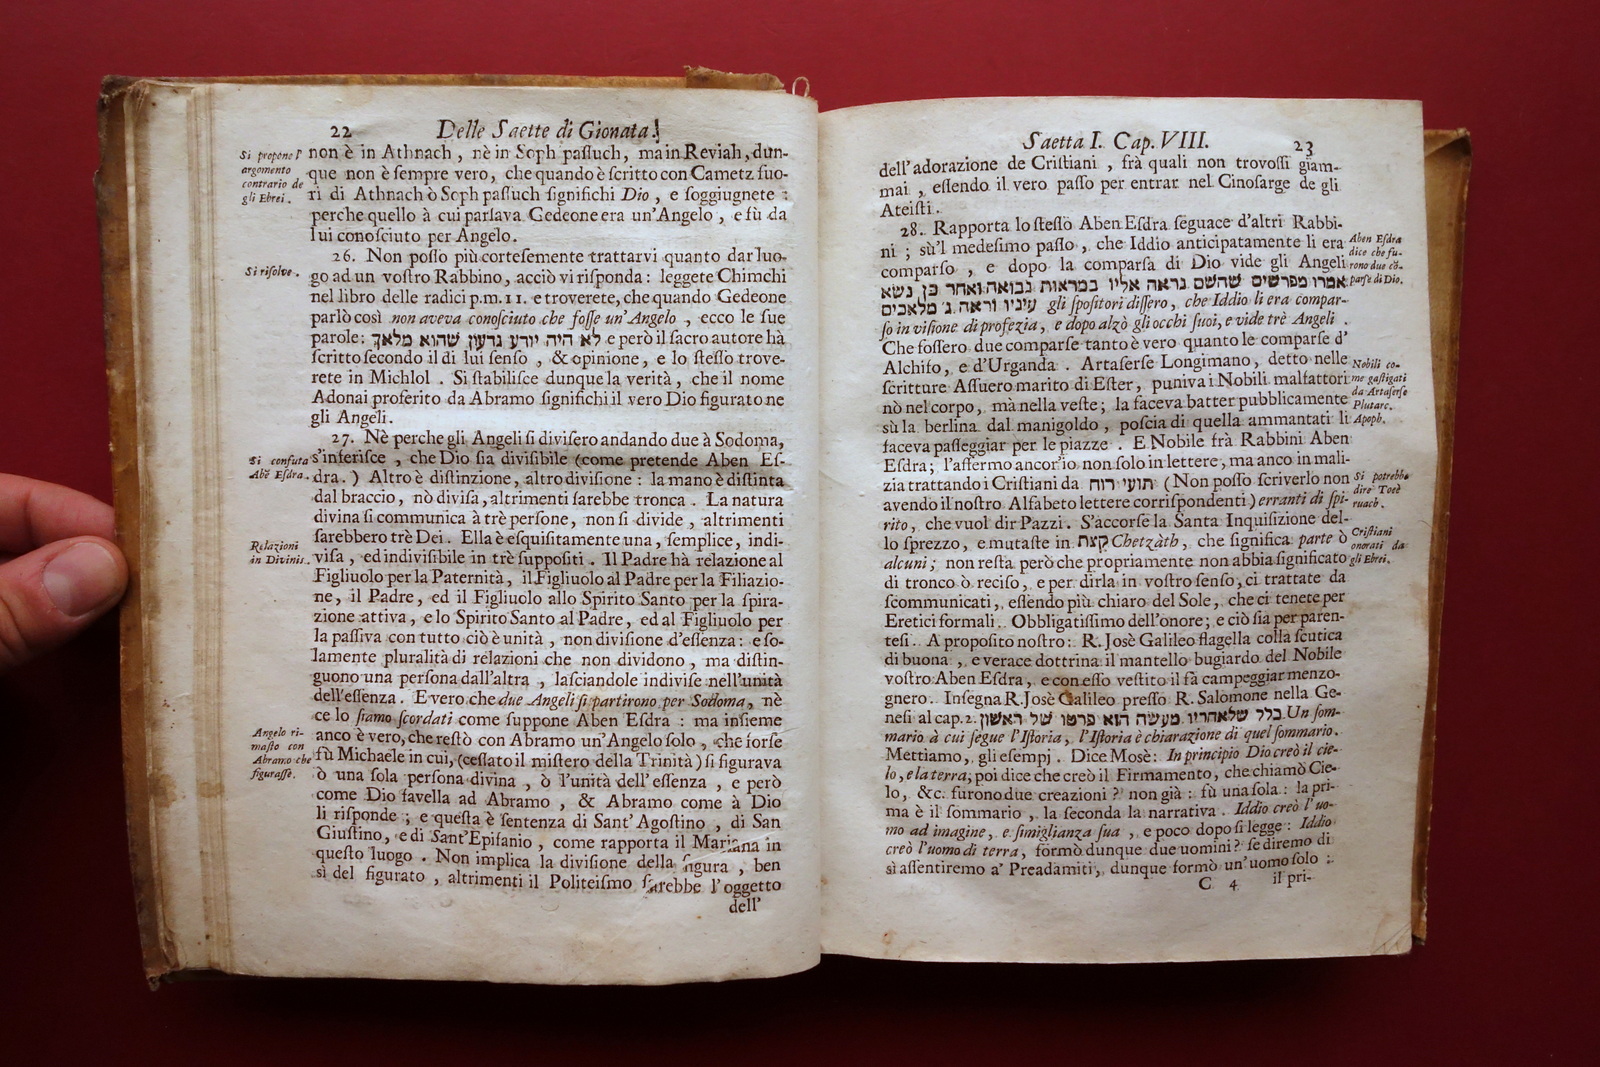 22 Delle Saette di Gionata.
Si propone l'
argomento
contrario de
gli Ebrei.
non è in Athnach, nè in Soph passuch, ma in Reviah, dun-
que non è sempre vero, che quando è scritto con Cametz fuo-
ri di Athnach ò Soph passuch significhi Dio, e soggiugnete:
perche quello à cui parlava Gedeone era un'Angelo, e fù da
lui conosciuto per Angelo.
Si risolve.
26. Non posso più cortesemente trattarvi quanto dar luo-
go ad un vostro Rabbino, acciò vi risponda: leggete Chimchi
nel libro delle radici p.m.11. e troverete, che quando Gedeone
parlò così non aveva conosciuto che fosse un'Angelo, ecco le sue
parole: לא היה יודע גדעון שהוא מלאך e però il sacro autore hà
scritto secondo il di lui senso, & opinione, e lo stesso trove-
rete in Michlol. Si stabilisce dunque la verità, che il nome
Adonai proferito da Abramo significhi il vero Dio figurato ne
gli Angeli.
27. Nè perche gli Angeli si divisero andando due à Sodoma,
Si confuta
Abẽ Esdra.
s'inferisce, che Dio sia divisibile (come pretende Aben Es-
dra.) Altro è distinzione, altro divisione: la mano è distinta
dal braccio, nò divisa, altrimenti sarebbe tronca. La natura
divina si communica à trè persone, non si divide, altrimenti
sarebbero trè Dei. Ella è esquisitamente una, semplice, indi-
Relazioni
in Divinis.
visa, ed indivisibile in trè suppositi. Il Padre hà relazione al
Figliuolo per la Paternità, il Figliuolo al Padre per la Filiazio-
ne, il Padre, ed il Figliuolo allo Spirito Santo per la spira-
zione attiva, e lo Spirito Santo al Padre, ed al Figliuolo per
la passiva con tutto ciò è unità, non divisione d'essenza: e so-
lamente pluralità di relazioni che non dividono, ma distin-
guono una persona dall'altra, lasciandole indivise nell'unità
dell'essenza. E vero che due Angeli si partirono per Sodoma, nè
ce lo siamo scordati come suppone Aben Esdra: ma insieme
Angelo ri-
masto con
Abramo che
figurasse.
anco è vero, che restò con Abramo un'Angelo solo, che forse
fù Michaele in cui, (cessato il mistero della Trinità) si figurava
ò una sola persona divina, ò l'unità dell'essenza, e però
come Dio favella ad Abramo, & Abramo come à Dio
li risponde; e questa è sentenza di Sant'Agostino, di San
Giustino, e di Sant'Epifanio, come rapporta il Mariana in
questo luogo. Non implica la divisione della figura, ben
sì del figurato, altrimenti il Politeismo sarebbe l'oggetto
dell'
Saetta I. Cap. VIII. 23
dell'adorazione de Cristiani, frà quali non trovossi giam-
mai, essendo il vero passo per entrar nel Cinosarge de gli
Ateisti.
28. Rapporta lo stesso Aben Esdra seguace d'altri Rabbi-
ni; sù'l medesimo passo, che Iddio anticipatamente li era
comparso, e dopo la comparsa di Dio vide gli Angeli
Aben Esdra
dice che fu-
rono due cõ-
parse di Dio.
אמרו מפרשים שהשם נראה אליו במראות נבואה ואחר כן נשא
עיניו וראה ג מלאכים gli spositori dissero, che Iddio li era compar-
so in visione di profezia, e dopo alzò gli occhi suoi, e vide trè Angeli.
Che fossero due comparse tanto è vero quanto le comparse d'
Alchiso, e d'Urganda. Artaserse Longimano, detto nelle
scritture Assuero marito di Ester, puniva i Nobili malfattori
Nobili co-
me gastigati
da Artaserse
Plutarc.
Apoph.
nò nel corpo, mà nella veste; la faceva batter pubblicamente
sù la berlina dal manigoldo, poscia di quella ammantati li
faceva passeggiar per le piazze. E Nobile frà Rabbini Aben
Esdra; l'affermo ancor'io non solo in lettere, ma anco in mali-
zia trattando i Cristiani da תועי רוח (Non posso scriverlo non
Si potrebbe
dire Toèè
ruach.
avendo il nostro Alfabeto lettere corrispondenti) erranti di spi-
rito, che vuol dir Pazzi. S'accorse la Santa Inquisizione del-
lo sprezzo, e mutaste in קצת Chetzàth, che significa parte ò
Cristiani
onorati da
gli Ebrei.
alcuni; non resta però che propriamente non abbia significato
di tronco ò reciso, e per dirla in vostro senso, ci trattate da
scommunicati, essendo più chiaro del Sole, che ci tenete per
Eretici formali. Obbligatissimo dell'onore; e ciò sia per paren-
tesi. A proposito nostro: R. Josè Galileo flagella colla scutica
di buona, e verace dottrina il mantello bugiardo del Nobile
vostro Aben Esdra, e con esso vestito il fà campeggiar menzo-
gnero. Insegna R. Josè Galileo presso R. Salomone nella Ge-
nesi al cap. 2. כלל שלאחריו מעשה הוא פרטו של ראשון Un som-
mario à cui segue l'Istoria, l'Istoria è chiarazione di quel sommario.
Mettiamo, gli esempj. Dice Mosè: In principio Dio creò il cie-
lo, e la terra; poi dice che creò il Firmamento, che chiamò Cie-
lo, &c. furono due creazioni? non già: fù una sola: la pri-
ma è il sommario, la seconda la narrativa. Iddio creò l'uo-
mo ad imagine, e simiglianza sua, e poco dopo si legge: Iddio
creò l'uomo di terra, formò dunque due uomini? se diremo di
sì assentiremo a' Preadamiti, dunque formò un'uomo solo:
C 4 il pri-